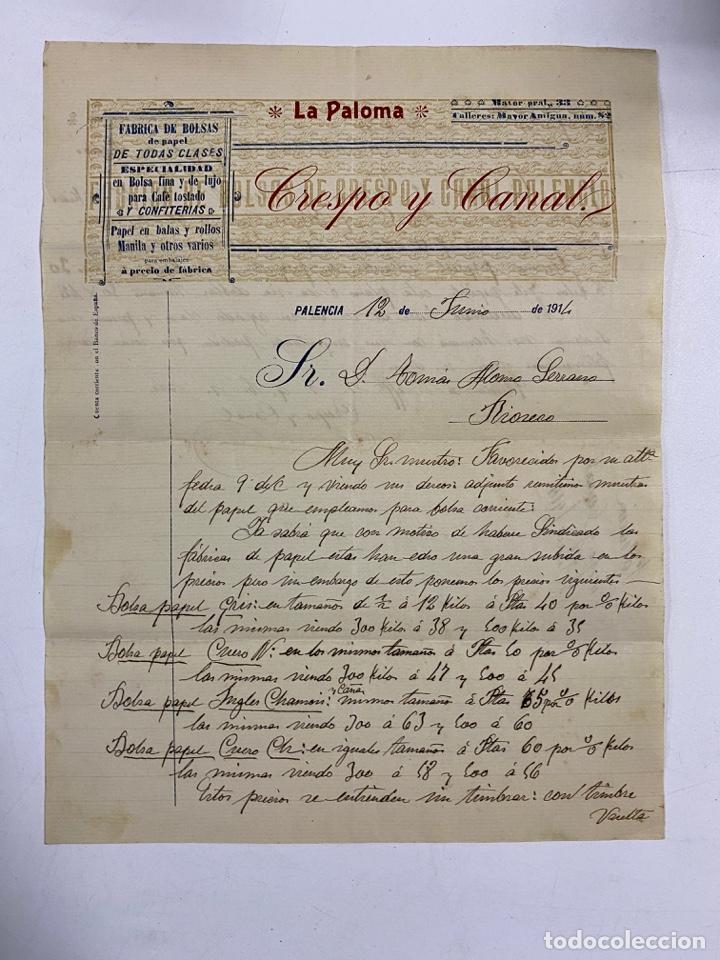 * La Paloma *
Mayor pral., 33
Talleres: Mayor Antigua, núm. 82
FÁBRICA DE BOLSAS
de papel
DE TODAS CLASES
ESPECIALIDAD
en Bolsa fina y de lujo
para Café tostado
Y CONFITERIAS
Papel en balas y rollos
Manila y otros varios
para embalajes
á precio de fábrica
BOLSAS DE CRESPO Y CANAL PALENCIA
Crespo y Canal.
Cuenta corriente en el Banco de España.
PALENCIA 12 de Junio de 1914
Sr. D. Tomás Alonso Serrano
Rioseco
Muy Sr. nuestro: Favorecidos por su atta
fecha 9 del c y viendo sus deseos: adjunto remitimos muestras
del papel que empleamos para bolsa corriente.
Ya sabrá que con motivo de haberse Sindicado las
fábricas de papel estas han una gran subida en los
precios pero sin embargo de esto ponemos los precios siguientes—
Bolsa papel Gris: en tamaños de ½ á 12 Kilos á Ptas 40 por % Kilos
las mismas siendo 300 Kilos á 38 y 500 Kilos á 35
Bolsa papel Cuero N: en los mismos tamaños á Ptas 50 por % Kilos
las mismas siendo 300 Kilos á 47 y 500 á 45
y Cañas
Bolsa papel Ingles Chamois: mismos tamaños á Ptas 65 por % Kilos
las mismas siendo 300 á 63 y 500 á 60
Bolsa papel Cuero Ch: en iguales tamaños á Ptas 60 por % Kilos
las mismas siendo 300 á 58 y 500 á 56
Estos precios se entienden sin timbrar: con timbre
Vuelta
todocoleccion.net